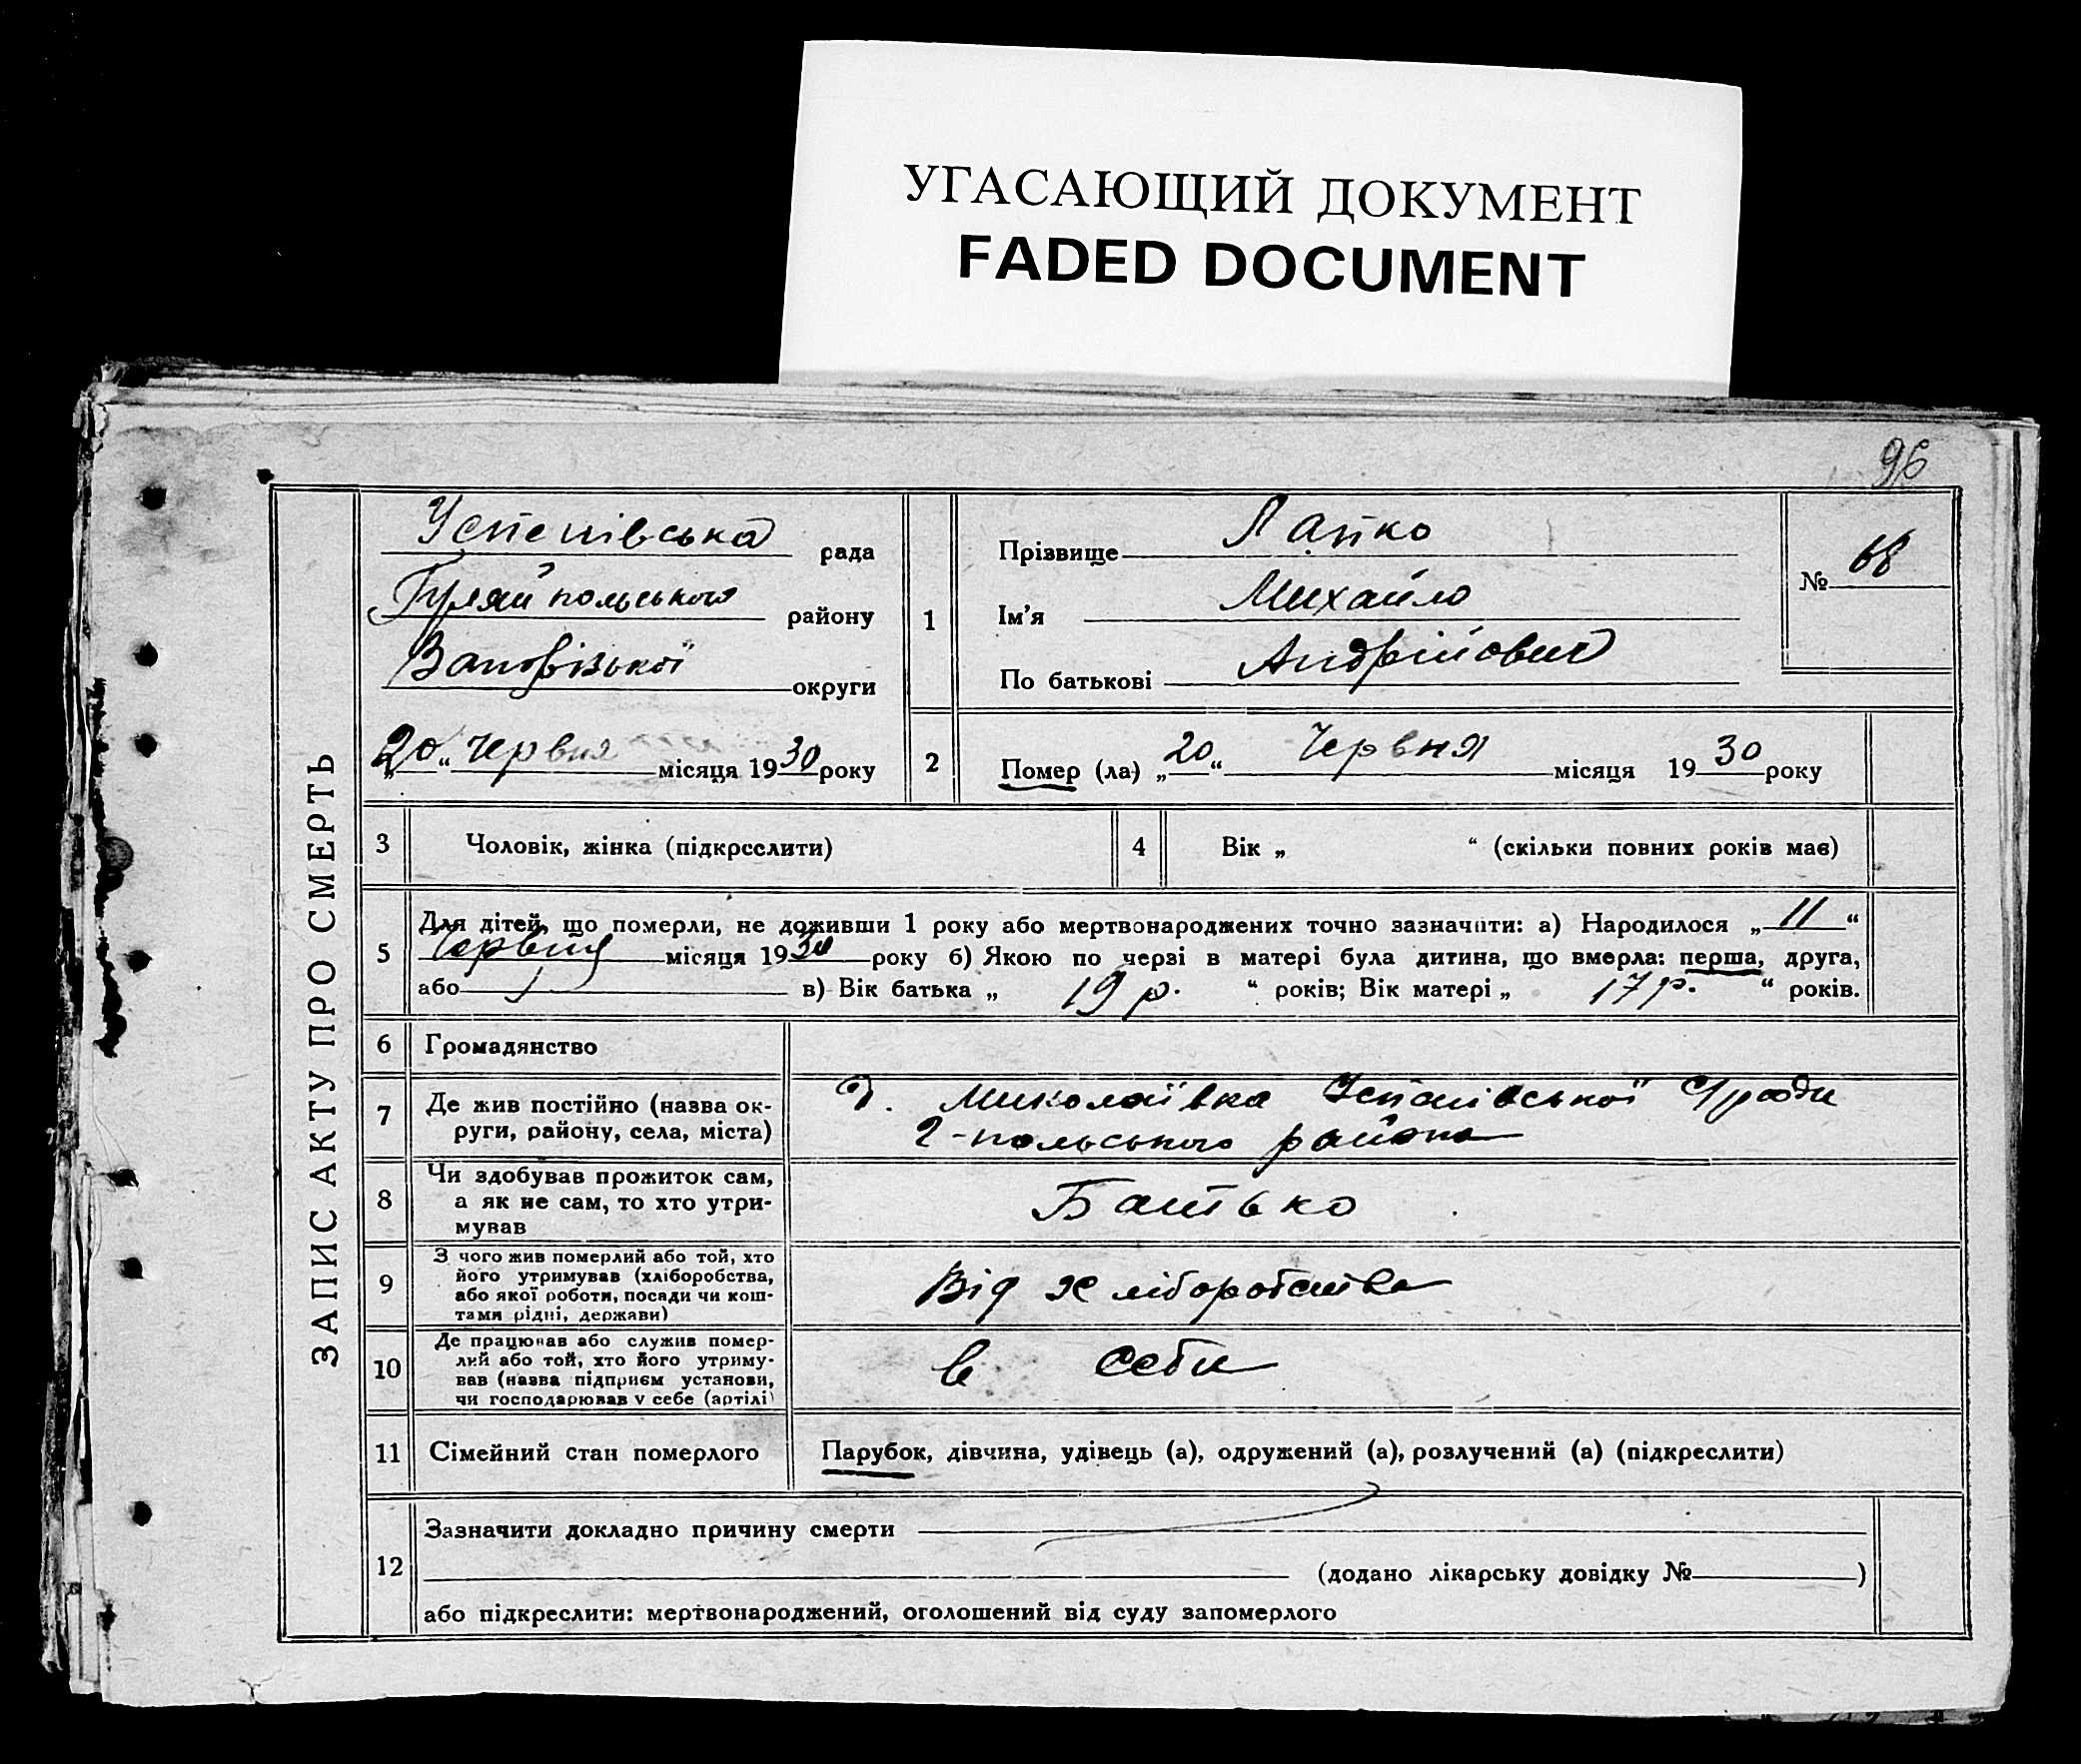 УГАСАЮЩИЙ ДОКУМЕНТ
FADED DOCUMENT
96
ЗАПИС АКТУ ПРО СМЕРТЬ
Успенівська рада
Гуляйпольського району
Запорізької округи
„20“ Червня місяця 1930 року
1
Прізвище Лапко
Ім'я Михайло
По батькові Андрійович
№ 68
2
Помер (ла) „20“ Червня місяця 1930 року
3 Чоловік, жінка (підкреслити)
4 Вік „ “ (скільки повних років має)
5
Для дітей, що померли, не доживши 1 року або мертвонароджених точно зазначити: а) Народилося „11“
Червня місяця 1930 року б) Якою по черзі в матері була дитина, що вмерла: перша, друга,
або в) Вік батька „ 19 р. “ років; Вік матері „ 17 р. “ років.
6 Громадянство
7 Де жив постійно (назва ок-
руги, району, села, міста)
Миколаївка Успенівської с/ради
Г-польського района
8 Чи здобував прожиток сам,
а як не сам, то хто утри-
мував
Батько
9 З чого жив померлий або той, хто
його утримував (хліборобства,
або якої роботи, посади чи кош-
тами рідні, держави)
Від хліборобства
10 Де працював або служив помер-
лий або той, хто його утриму-
вав (назва підприєм установи,
чи господарював у себе (артілі)
в себи
11 Сімейний стан померлого
Парубок, дівчина, удівець (а), одружений (а), розлучений (а) (підкреслити)
12
Зазначити докладно причину смерти
(додано лікарську довідку № )
або підкреслити: мертвонароджений, оголошений від суду запомерлого